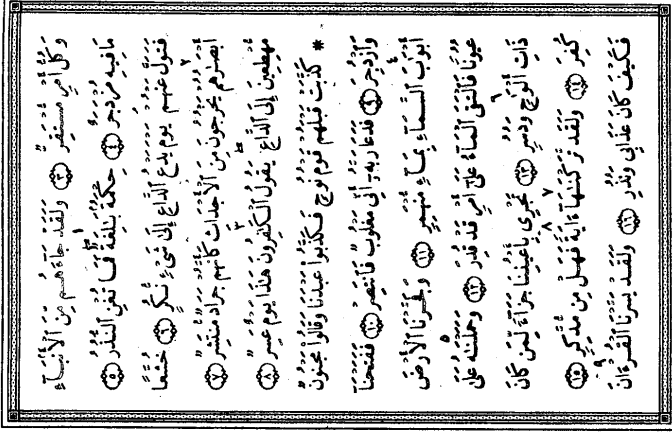 وَكُلُّ أَمْرٍ مُّسْتَقِرٌّ ﴿٣﴾ وَلَقَدْ جَآءَهُم مِّنَ ٱلْأَنۢبَآءِ
مَا فِيهِ مُزْدَجَرٌ ﴿٤﴾ حِكْمَةٌۢ بَٰلِغَةٌ فَمَا تُغْنِ ٱلنُّذُرُ ﴿٥﴾
فَتَوَلَّ عَنْهُمْ يَوْمَ يَدْعُ ٱلدَّاعِ إِلَىٰ شَىْءٍ نُّكُرٍ ﴿٦﴾ خُشَّعًا
أَبْصَٰرُهُمْ يَخْرُجُونَ مِنَ ٱلْأَجْدَاثِ كَأَنَّهُمْ جَرَادٌ مُّنتَشِرٌ ﴿٧﴾
مُّهْطِعِينَ إِلَى ٱلدَّاعِ يَقُولُ ٱلْكَٰفِرُونَ هَٰذَا يَوْمٌ عَسِرٌ ﴿٨﴾
* كَذَّبَتْ قَبْلَهُمْ قَوْمُ نُوحٍ فَكَذَّبُوا۟ عَبْدَنَا وَقَالُوا۟ مَجْنُونٌ
وَٱزْدُجِرَ ﴿٩﴾ فَدَعَا رَبَّهُۥٓ أَنِّى مَغْلُوبٌ فَٱنتَصِرْ ﴿١٠﴾ فَفَتَحْنَآ
أَبْوَٰبَ ٱلسَّمَآءِ بِمَآءٍ مُّنْهَمِرٍ ﴿١١﴾ وَفَجَّرْنَا ٱلْأَرْضَ
عُيُونًا فَٱلْتَقَى ٱلْمَآءُ عَلَىٰٓ أَمْرٍ قَدْ قُدِرَ ﴿١٢﴾ وَحَمَلْنَٰهُ عَلَىٰ
ذَاتِ أَلْوَٰحٍ وَدُسُرٍ ﴿١٣﴾ تَجْرِى بِأَعْيُنِنَا جَزَآءً لِّمَن كَانَ
كُفِرَ ﴿١٤﴾ وَلَقَد تَّرَكْنَٰهَآ ءَايَةً فَهَلْ مِن مُّدَّكِرٍ ﴿١٥﴾
فَكَيْفَ كَانَ عَذَابِى وَنُذُرِ ﴿١٦﴾ وَلَقَدْ يَسَّرْنَا ٱلْقُرْءَانَ